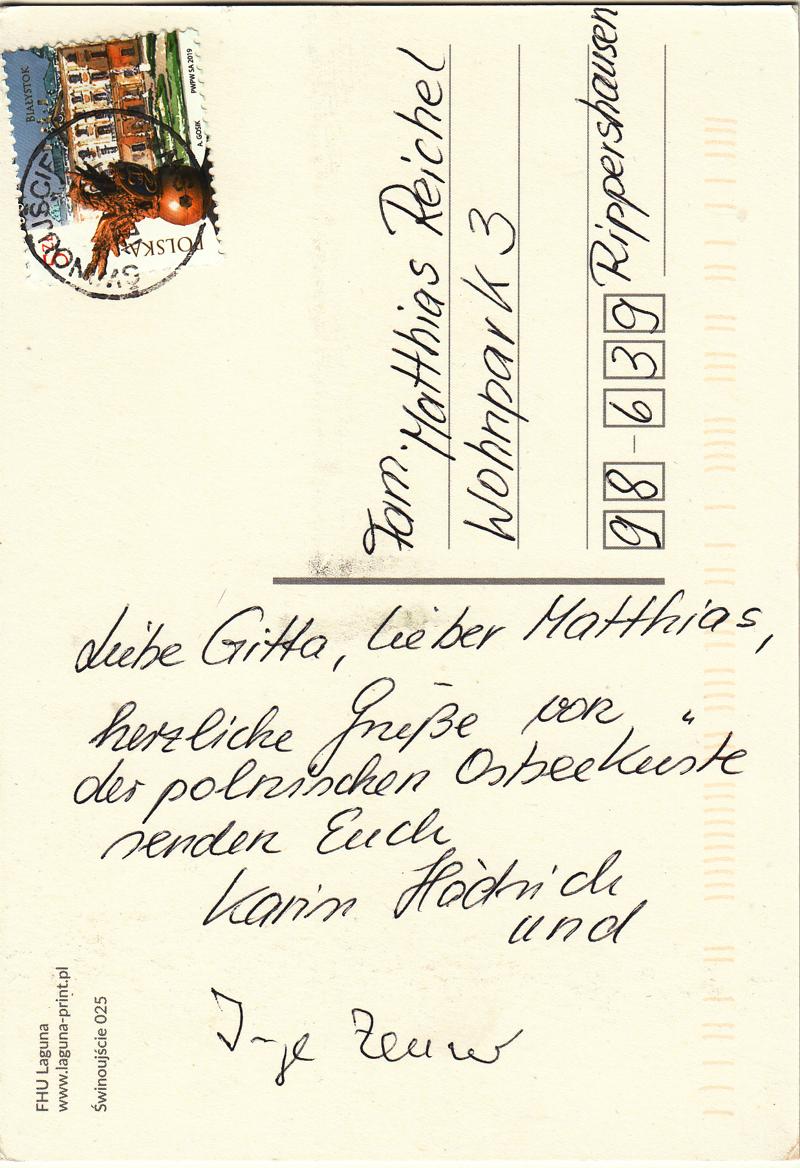 BIAŁYSTOK
PWPW SA 2019
A. GOSIK
POLSKA
ŚWINOUJŚCIE
Fam. Matthias Reichel
Wohnpark 3
98-639 Rippershausen
Liebe Gitta, lieber Matthias,
herzliche Grüße von
der polnischen Ostseeküste
senden Euch
Karin Hädrich
und
Inge
FHU Laguna
www.laguna-print.pl
Świnoujście 025